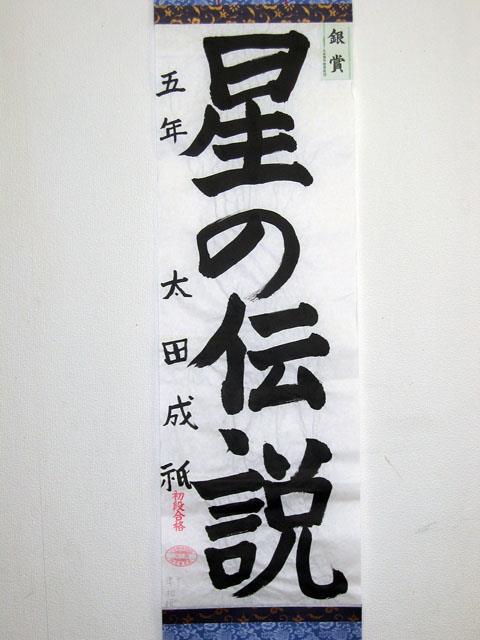 銀賞
星の伝説
五年 太田成祇
初段合格